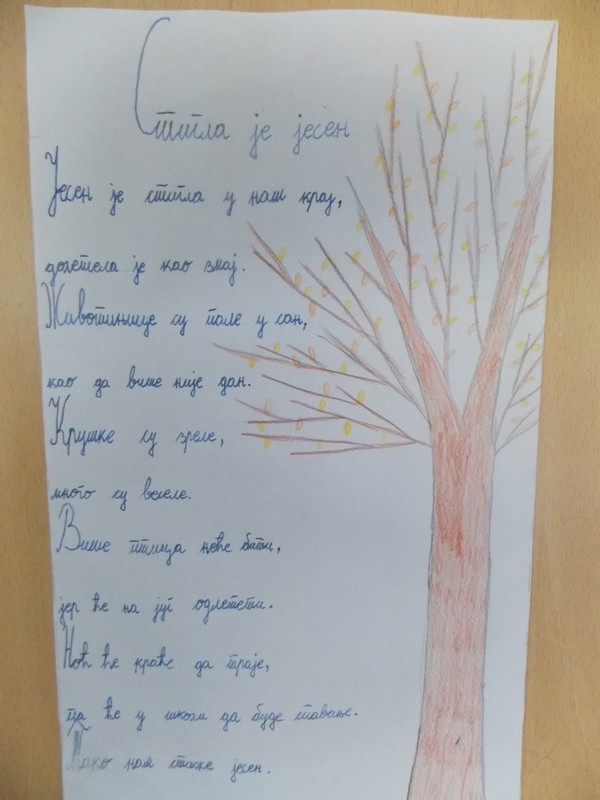 Стигла је јесен
Јесен је стигла у наш крај,
долетела је као змај.
Животињице су пале у сан,
као да више није дан.
Крушке су зреле,
много су веселе.
Више птица неће бити,
јер ће на југ одлетети.
Ноћ ће краће да траје,
па ће у школи да буде спавање.
Тако нам стиже јесен.